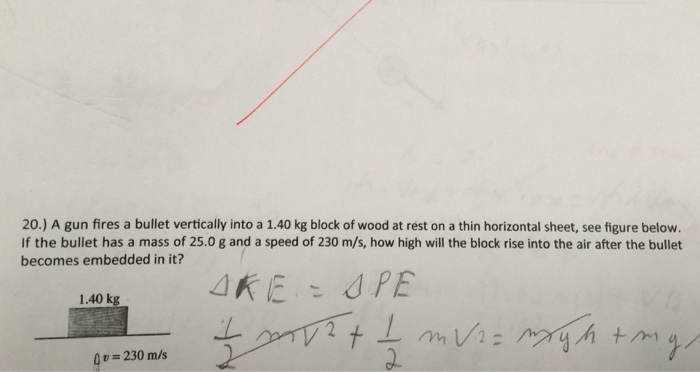 20.) A gun fires a bullet vertically into a 1.40 kg block of wood at rest on a thin horizontal sheet, see figure below.
If the bullet has a mass of 25.0 g and a speed of 230 m/s, how high will the block rise into the air after the bullet
becomes embedded in it?
ΔKE = ΔPE
1.40 kg
1/2 mv² + 1/2 mv² = mgh + mg
v = 230 m/s